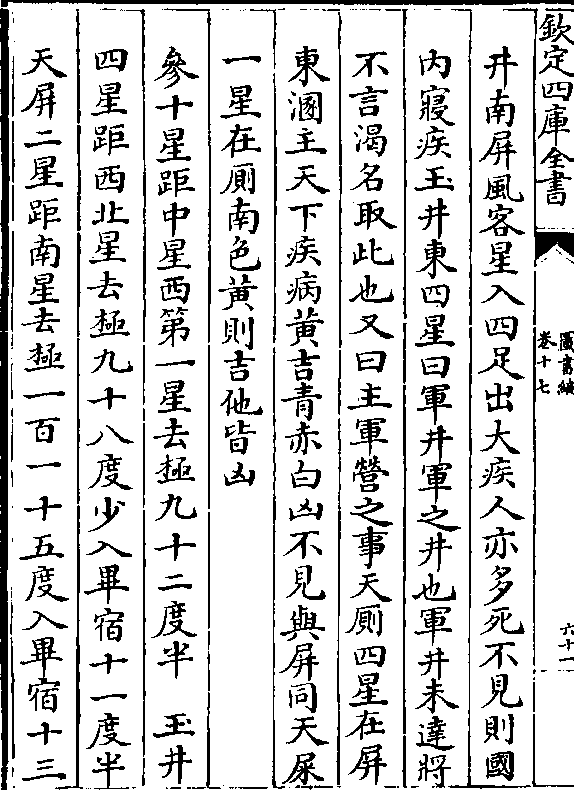 欽定四庫全書
圖書編
卷十七
六十一
井南屏風客星入四足出大疾人亦多死不見則國
内寢疾玉井東四星曰軍井軍之井也軍井未達將
不言渴名取此也又曰主軍營之事天厠四星在屏
東溷主天下疾病黃吉青赤白凶不見與屏同天屎
一星在厠南色黃則吉他皆凶
參十星距中星西第一星去極九十二度半　玉井
四星距西北星去極九十八度少入畢宿十一度半
天屏二星距南星去極一百一十五度入畢宿十三